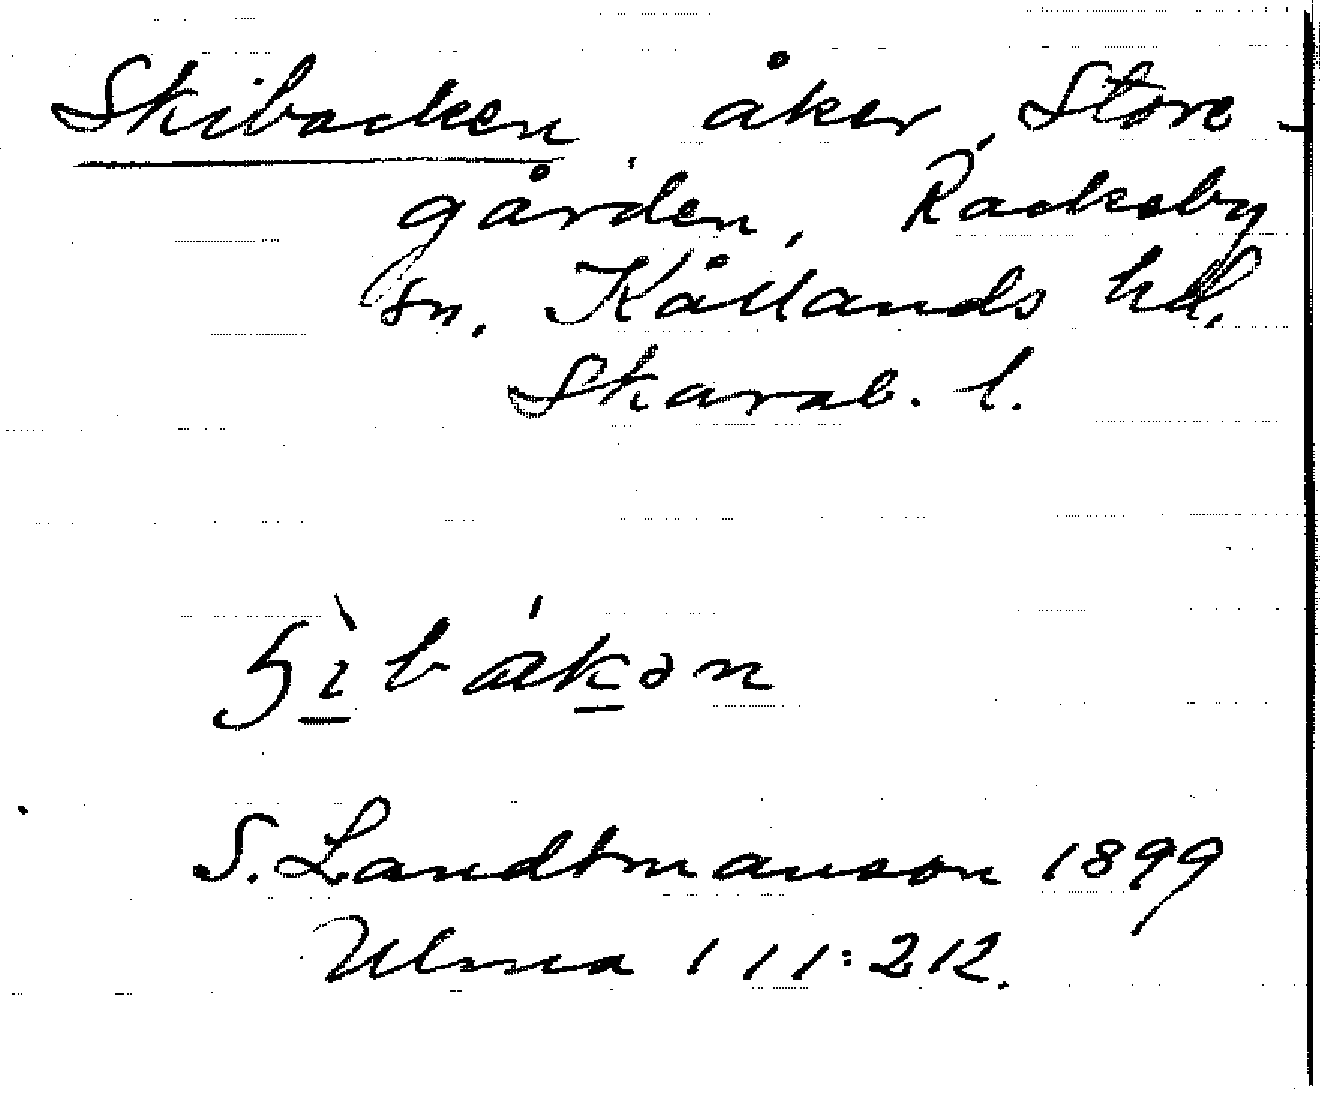 Skibacken åker, Store-
gården, Rackeby
sn. Kållands hd.
Skarab. l.
S. Landtmanson 1899
Ulma 111:212.